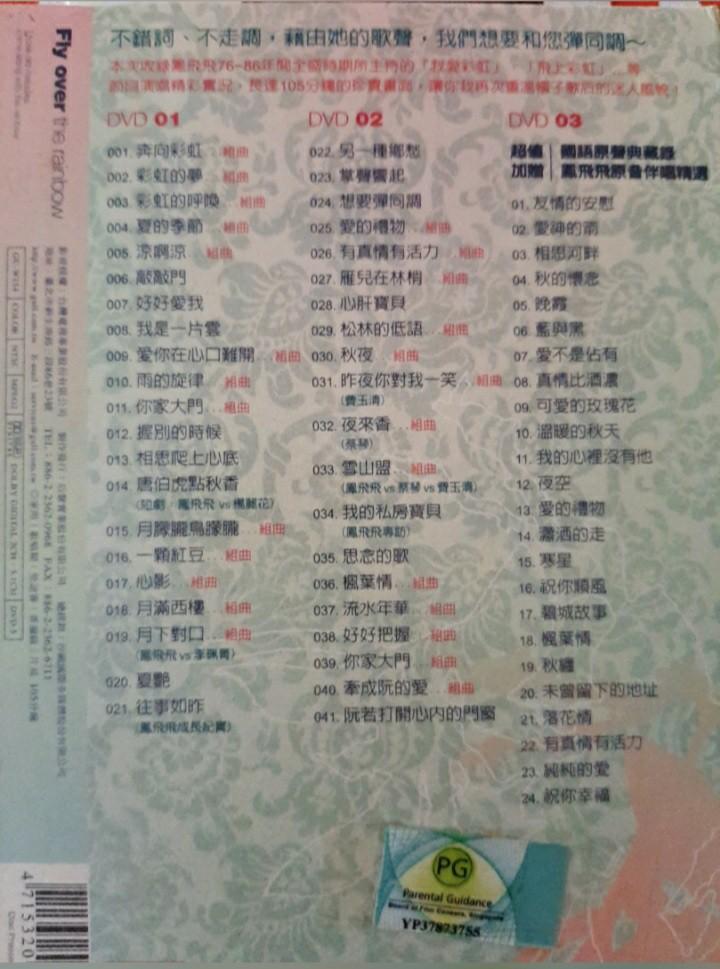 不錯詞、不走調，藉由她的歌聲，我們想要和您彈同調～
本次收錄鳳飛飛76-86年間全盛時期所主持的「我愛彩虹」、「飛上彩虹」...等
節目演唱精彩實況，長達105分鐘的珍貴畫面，讓你我再次重溫帽子歌后的迷人風貌！
DVD 01
001. 奔向彩虹...組曲
002. 彩虹的夢...組曲
003. 彩虹的呼喚...組曲
004. 夏的季節...組曲
005. 涼啊涼...組曲
006. 敲敲門
007. 好好愛我
008. 我是一片雲
009. 愛你在心口難開...組曲
010. 雨的旋律...組曲
011. 你家大門...組曲
012. 握別的時候
013. 相思爬上心底
014. 唐伯虎點秋香
(短劇：鳳飛飛 vs 楊麗花)
015. 月朦朧鳥朦朧...組曲
016. 一顆紅豆...組曲
017. 心影...組曲
018. 月滿西樓...組曲
019. 月下對口...組曲
(鳳飛飛 vs 李珮菁)
020. 夏艷
021. 往事如昨
(鳳飛飛成長紀實)
DVD 02
022. 另一種鄉愁
023. 掌聲響起
024. 想要彈同調
025. 愛的禮物...組曲
026. 有真情有活力...組曲
027. 雁兒在林梢...組曲
028. 心肝寶貝
029. 松林的低語...組曲
030. 秋夜...組曲
031. 昨夜你對我一笑...組曲
(費玉清)
032. 夜來香...組曲
(蔡琴)
033. 雪山盟...組曲
(鳳飛飛 vs 蔡琴 vs 費玉清)
034. 我的私房寶貝
(鳳飛飛專訪)
035. 思念的歌
036. 楓葉情...組曲
037. 流水年華...組曲
038. 好好把握...組曲
039. 你家大門...組曲
040. 牽成阮的愛...組曲
041. 阮若打開心內的門窗
DVD 03
超值 國語原聲典藏錄
加贈 鳳飛飛原音伴唱精選
01. 友情的安慰
02. 愛神的箭
03. 相思河畔
04. 秋的懷念
05. 晚霞
06. 藍與黑
07. 愛不是佔有
08. 真情比酒濃
09. 可愛的玫瑰花
10. 溫暖的秋天
11. 我的心裡沒有他
12. 夜空
13. 愛的禮物
14. 瀟洒的走
15. 寒星
16. 祝你順風
17. 碧城故事
18. 楓葉情
19. 秋纏
20. 未曾留下的地址
21. 落花情
22. 有真情有活力
23. 純純的愛
24. 祝你幸福
Fly over the rainbow
TEL：886-2-2362-0968 FAX 886-2-2362-6711
COLOR
NTSC
MPEG2
DOLBY DIGITAL
DVD 5
4 715320
PG
Parental Guidance
Board of Film Censors, Singapore
YP37873755